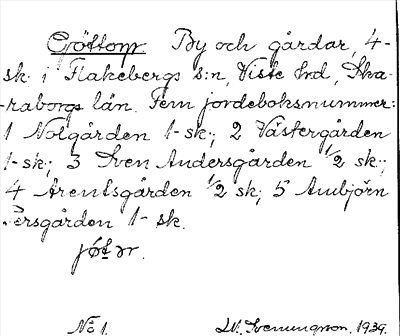 Göttorp. By och gårdar, 4-
sk. i Flakebergs s:n, Viste hd, Ska-
raborgs län. Fem jordeboksnummer:
1 Nolgården 1-sk.; 2 Västergården
1-sk.; 3 Sven Andersgården 1/2 sk.;
4 Arentsgården 1/2 sk.; 5 Ambjörn
Persgården 1- sk.
No 1. 1939.